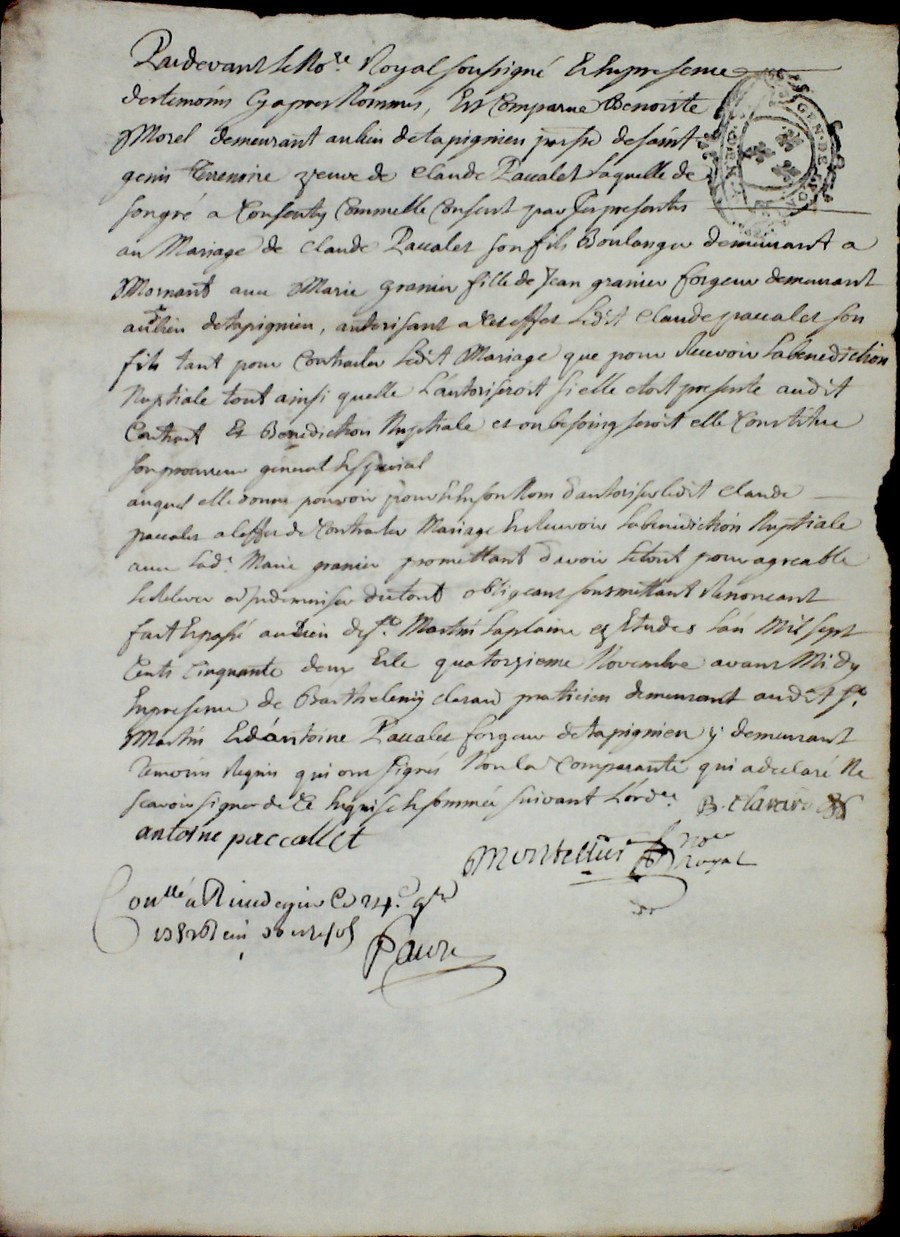 Pardevant le No.re Royal soussigné Et enpresence
destemoins Cyapres Nommes, Est Comparue Benoiste
Morel demeurant aulieu detapignieu parsse desaint
genis Terrenoire veuve de Claude Paccalet Laquelle de
songré a Consenty Comme elle Consent par Ces presentes
au Mariage de Claude Paccalet son fils Boulanger demeurant a
Mornant avec Marie granier fille de Jean granier forgeur demeurant
audit lieu detapignieu, autorisant a cet effet Ledit Claude paccalet son
fils tant pour Contracter Ledit Mariage que pour Recevoir Labenediction
Nuptiale tout ainsi quelle Lautoriseroit si elle etoit presente audit
Contrat Et Benediction Nuptiale et ou besoing seroit elle Constitue
son procureur general Et special
auquel elle donne pouvoir pour Et En son Nom d'autoriser ledit Claude
paccalet aleffet de Contracter Mariage Et Recevoir Labenediction Nuptiale
avec lad.e Marie granier promettant d'avoir Letout pour agreable
Le Relever Et indemniser du tout obligeant soumettant Renonceant
fait Et passé au lieu de St. Martin Laplaine Et Etudes Lan Mil sept
Cents Cinquante deux Et le quatorzieme Novembre avant Midy
Enpresence de Barthelemy Clavard praticien demeurant audit St.
Martin Et d'antoine Paccalet forgeur detapignieu y demeurant
temoins Requis qui ont signés Non la Comparante qui a declaré Ne
scavoir signer de Ce Enquise Et sommée suivant L'ord.ce B. Clavard
antoine paccallet
Montellier No.re
Royal
Con.llé à Rivedegier Ce 24.e 9bre
1752
Faure